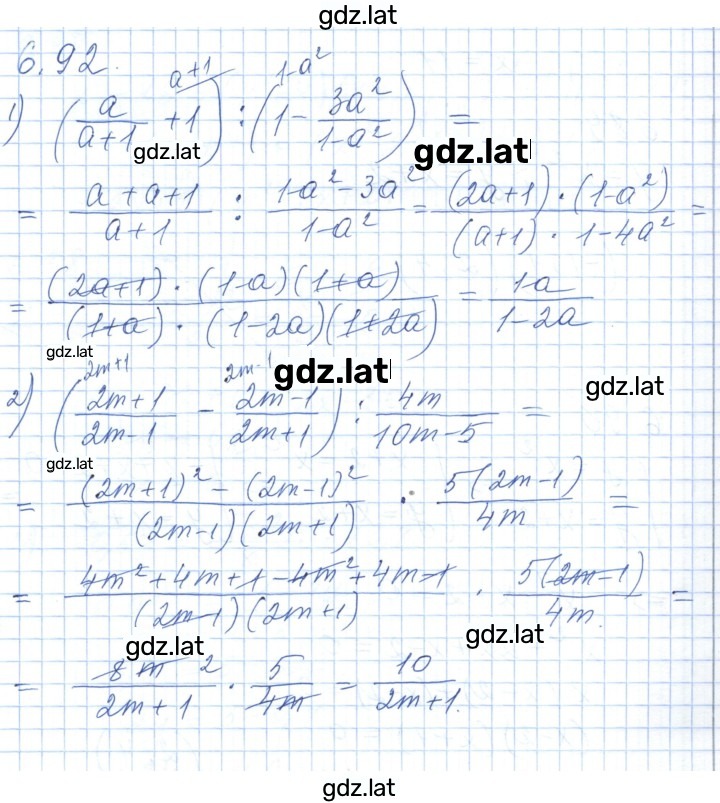 gdz.lat
6.92.
1) (a/(a+1) + 1^(a+1)) : (1^(1-a²) - 3a²/(1-a²)) =
gdz.lat
gdz.lat
= (a+a+1)/(a+1) : (1-a²-3a²)/(1-a²) = ((2a+1)·(1-a²))/((a+1)·1-4a²) =
= ((2a+1)·(1-a)(1+a))/((1+a)·(1-2a)(1+2a)) = (1-a)/(1-2a)
gdz.lat
gdz.lat
gdz.lat
2) (^(2m+1) (2m+1)/(2m-1) - ^(2m-1) (2m-1)/(2m+1)) : 4m/(10m-5) =
gdz.lat
= ((2m+1)² - (2m-1)²)/((2m-1)(2m+1)) · 5(2m-1)/4m =
= (4m²+4m+1-4m²+4m-1)/((2m-1)(2m+1)) · 5(2m-1)/4m. =
gdz.lat
gdz.lat
= 8m 2/(2m+1) · 5/4m = 10/(2m+1).
gdz.lat